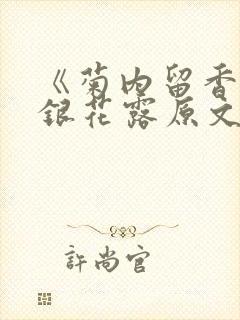 《菊内留香
銀花露原文
許尚官